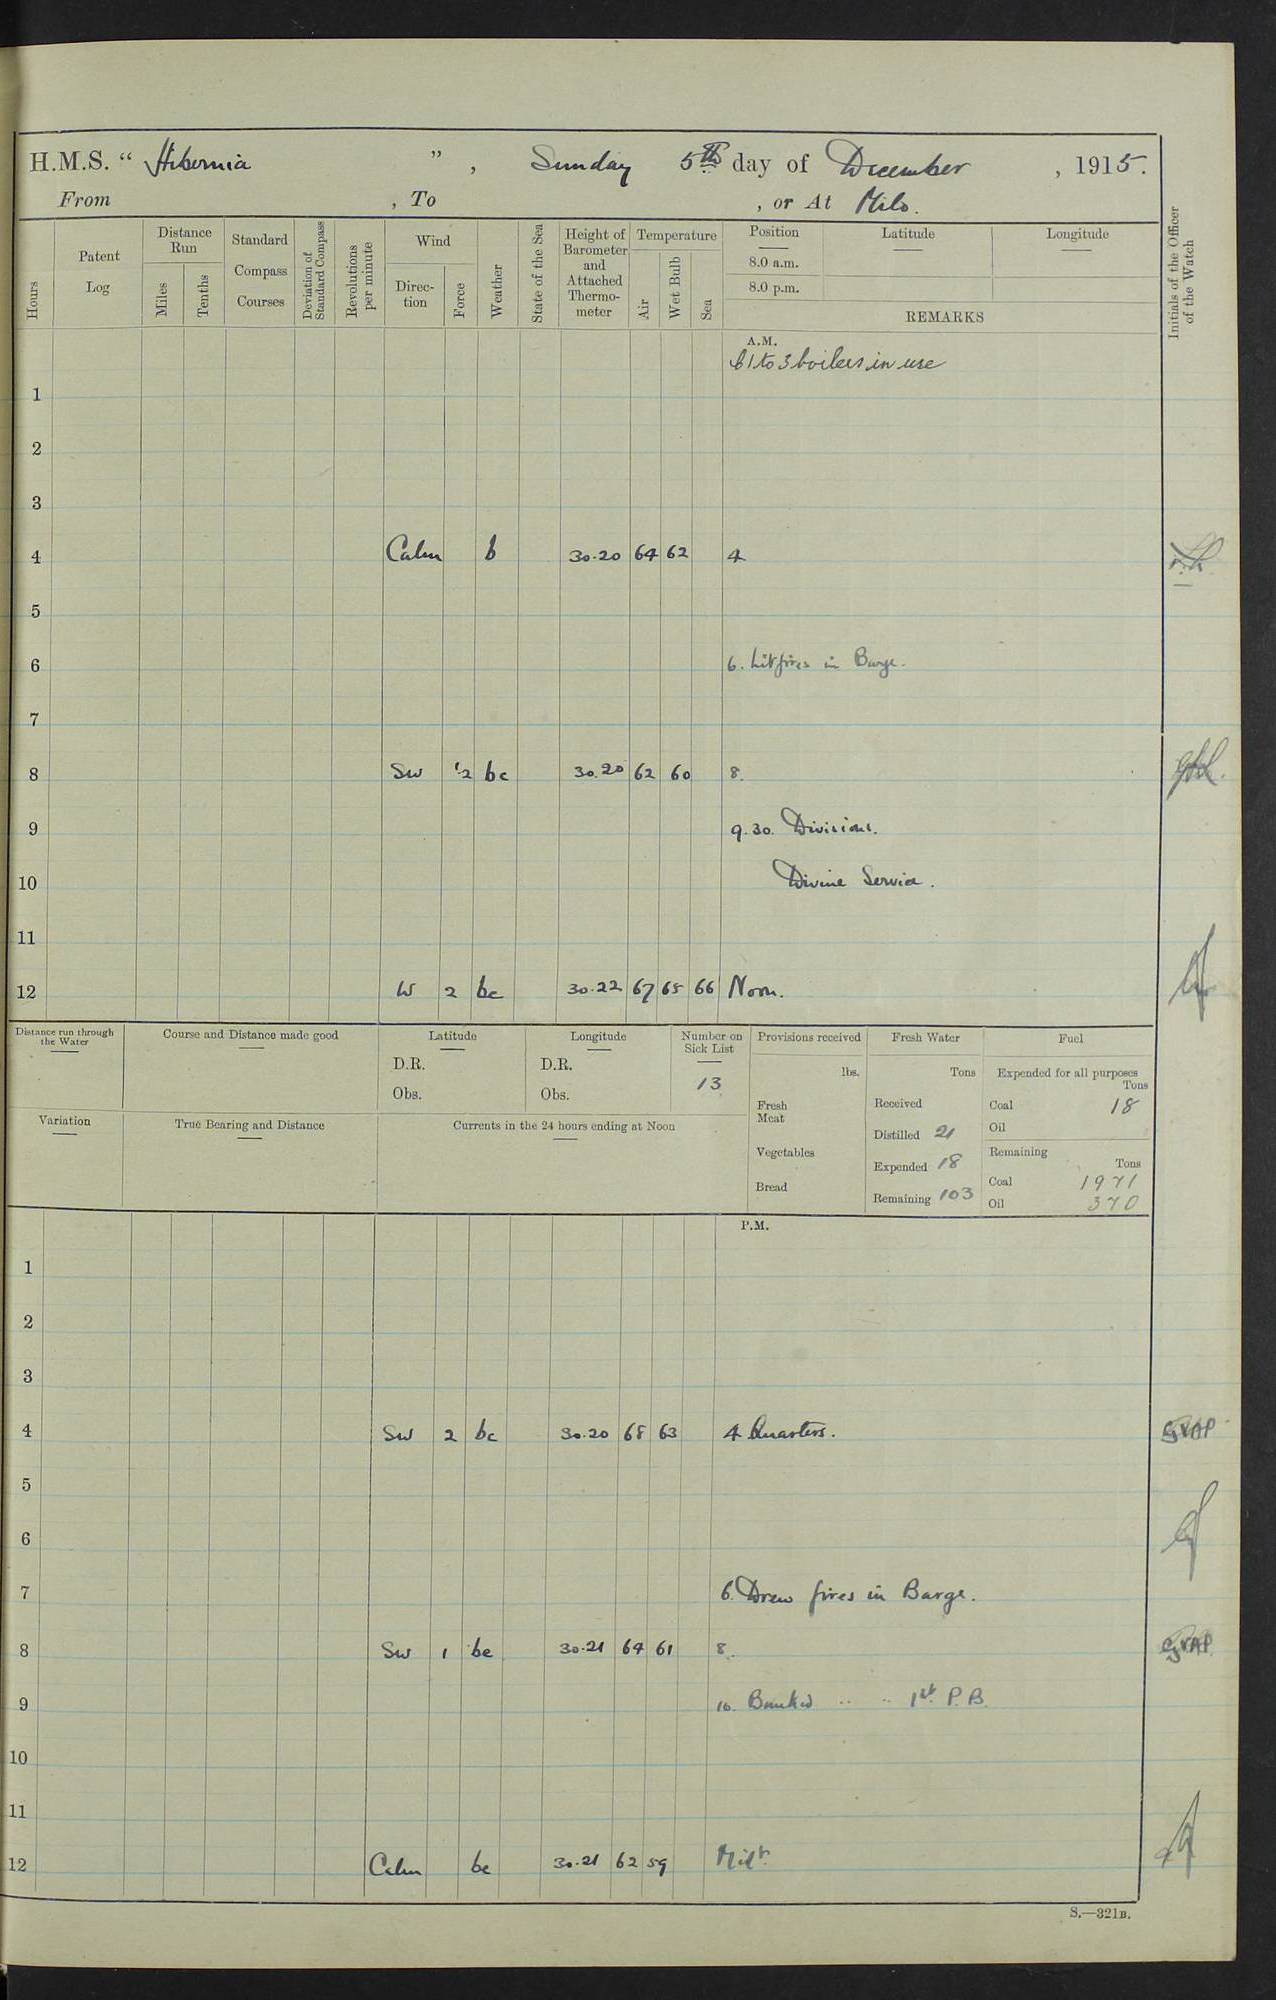 H.M.S. “ Hibernia ” , Sunday 5th day of December , 1915.
From , To , or At Milo.
Hours
Patent Log
Distance Run
Miles
Tenths
Standard Compass Courses
Deviation of Standard Compass
Revolutions per minute
Wind
Direction
Force
Weather
State of the Sea
Height of Barometer and Attached Thermometer
Temperature
Air
Wet Bulb
Sea
Position
8.0 a.m.
8.0 p.m.
Latitude
Longitude
REMARKS
Initials of the Officer of the Watch
A.M.
1 to 3 boilers in use
1
2
3
4 Calm b 30.20 64 62 4
5
6 6. Lit fires in Barge.
7
8 SW 1-2 bc 30.20 62 60 8.
9 9.30. Divisions.
10 Divine Service.
11
12 W 2 bc 30.22 67 65 66 Noon.
Distance run through the Water
Course and Distance made good
Latitude
D.R.
Obs.
Longitude
D.R.
Obs.
Number on Sick List
13
Provisions received
lbs.
Fresh Meat
Vegetables
Bread
Fresh Water
Tons
Received
Distilled 21
Expended 18
Remaining 103
Fuel
Expended for all purposes
Tons
Coal 18
Oil
Remaining
Tons
Coal 1971
Oil 370
Variation
True Bearing and Distance
Currents in the 24 hours ending at Noon
P.M.
1
2
3
4 SW 2 bc 30.20 65 63 4 Quarters.
5
6
7 6. Drew fires in Barge.
8 SW 1 bc 30.21 64 61 8.
9 10. Banked .. .. 1st P.B.
10
11
12 Calm bc 30.21 62 59 Midt.
S.—321B.